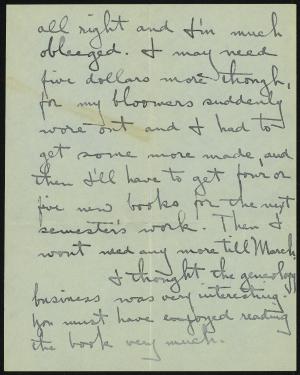 all right and I'm much
obleeged. I may need
five dollars more though,
for my bloomers suddenly
wore out and I had to
get some more made, and
then I'll have to get four or
five new books for the next
semester's work. Then I
wont need any more till March.
I thought the geneology
business was very interesting.
You must have enjoyed reading
the book very much.